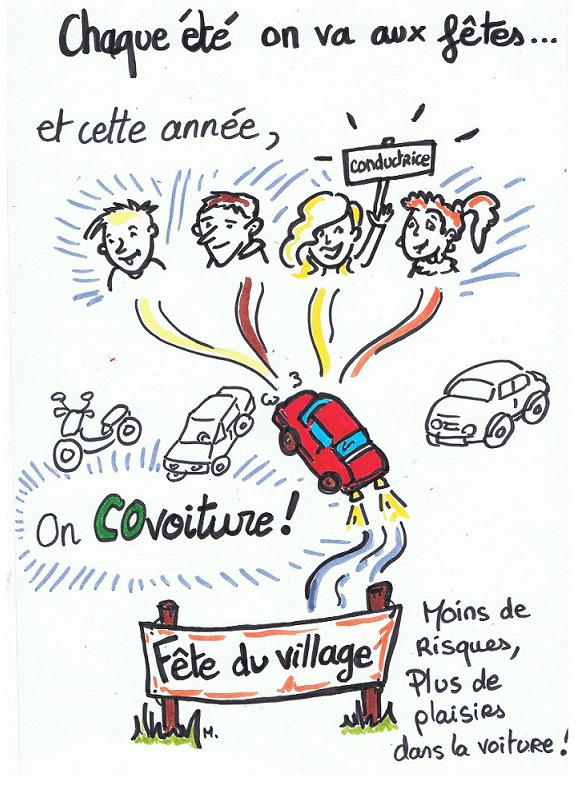 Chaque été on va aux fêtes...
et cette année,
CONDUCTRICE
On COvoiture !
Fête du village
M.
Moins de
Risques,
Plus de
plaisirs
dans la voiture !